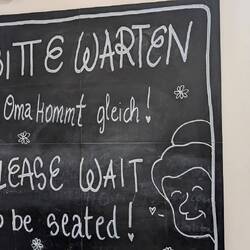 BITTE WARTEN
Oma kommt gleich!
PLEASE WAIT
to be seated!